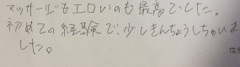 マッサージもエロいのも最高でした。
初めての経験で少しきんちょうしちゃいま
した。